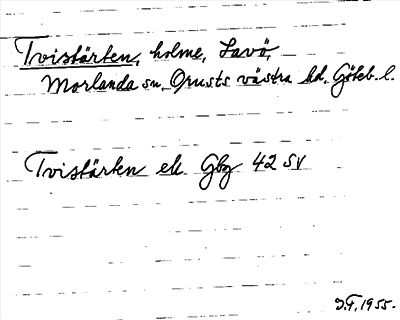 Tvistärten, holme, Lavö,
Morlanda sn, Orusts västra hd, Göteb. l.
Tvistärten ek Gbg 42 SV
J.F. 1955.